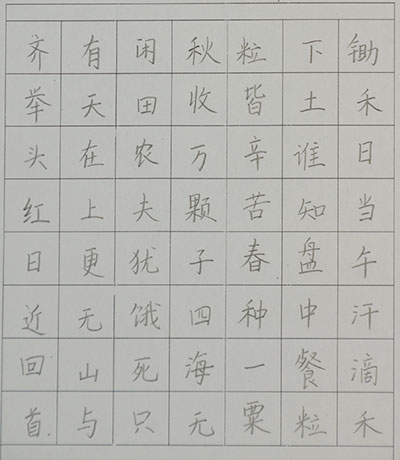 锄禾日当午汗滴禾
下土谁知盘中餐粒
粒皆辛苦春种一粟
秋收万颗子四海无
闲田农夫犹饿死只
有天在上更无山与
齐举头红日近回首.